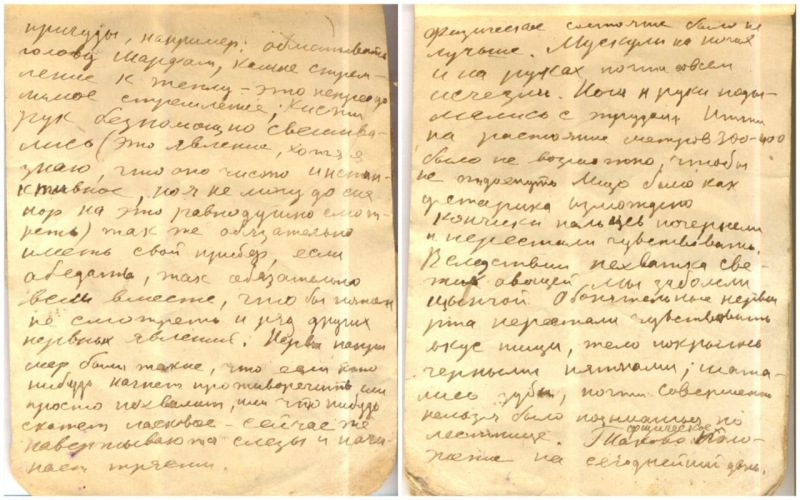 пригуды, например: обматывать
голову шарфом, какое стрем-
ление к теплу - это непреодо
лимое стремление; Кисти
рук безпомощно свешива-
лись (это явление, хотя я
знаю, что оно чисто инстин-
ктивное, но я не могу до сих
пор на это равнодушно смот-
реть) так же обязательно
иметь свой прибор, если
обедать, так обязательно
всем вместе, что бы
не смотреть и ряд других
нервных явлений. Нервы напри
мер были такие, что если кто
нибудь начнет противоречить или
просто похвалит, или что нибудь
скажет ласковое - сейчас же
навертываются слезы и начи-
нает трясти.
Физическое состояние было не
лучше. Мускулы на ногах
и на руках почти совсем
исчезли. Ноги и руки поды-
мались с трудом. Итти
на растояние метров 300-400
было не возможно, чтобы
не отдохнуть. Лицо было как
у старика измождено
Кончики пальцев почернели
и перестали чувствовать.
Вследствии нехватка све-
жих овощей мы заболели
цынгой. Обонятельные нервы
рта перестали чувствовать
вкус пищи, тело покрылось
черными пятнами; шата-
лись зубы, почти совершенно
нельзя было подниматься по
лестнице. Таково физическое поло-
жение на сегоднейший день.